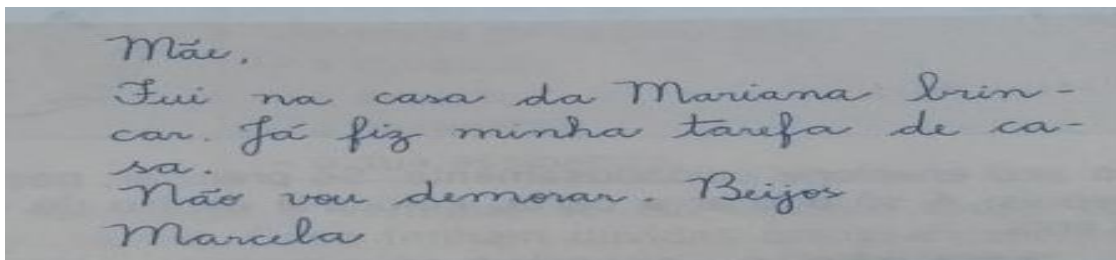 Mãe,
Fui na casa da Mariana brin-
car. Já fiz minha tarefa de ca-
sa.
Não vou demorar. Beijos
Marcela